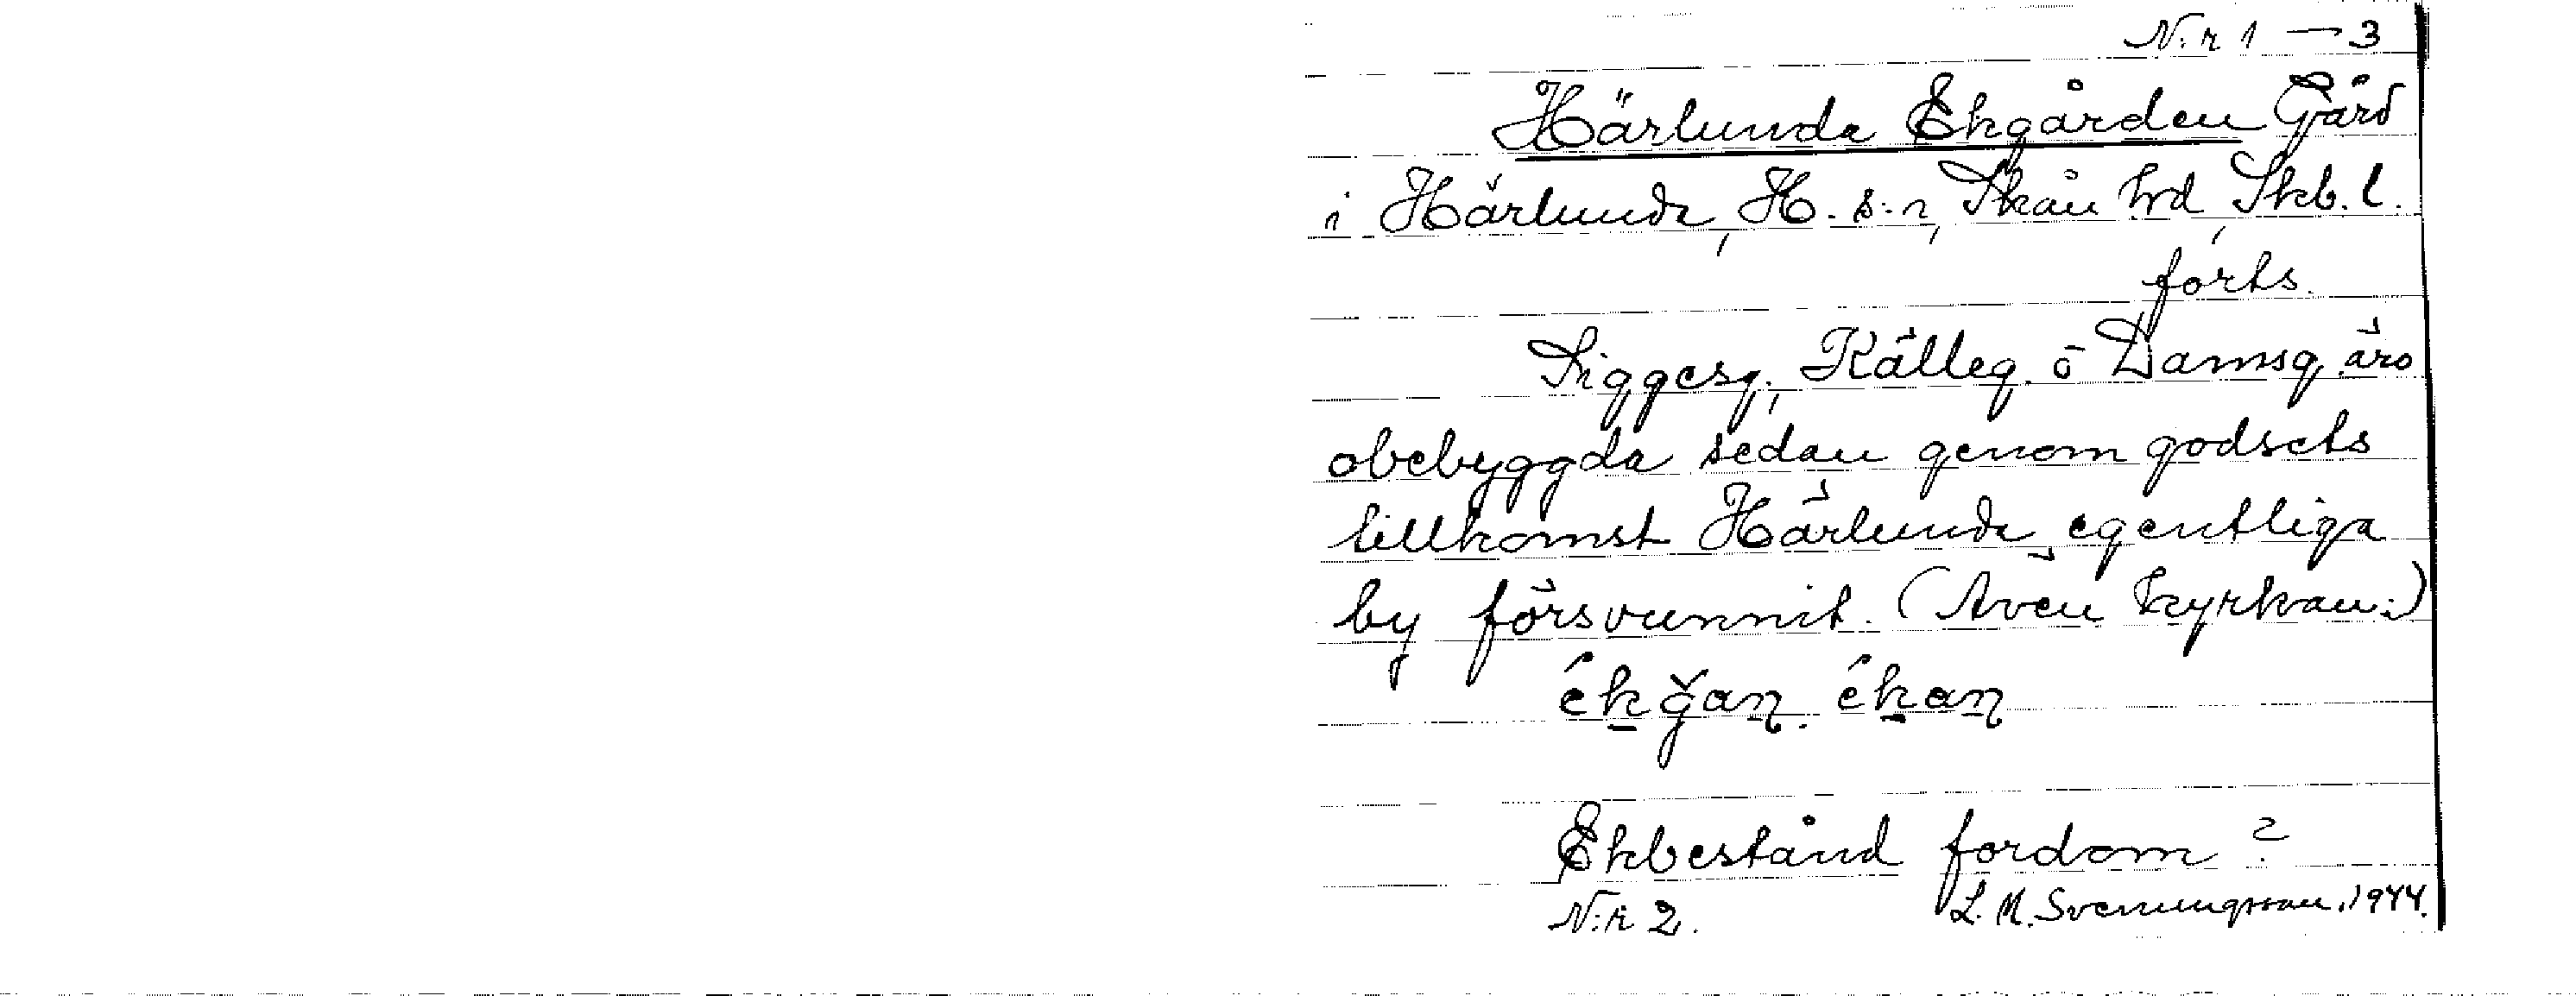 N:r 1 — 3
Härlunda Ekgården Gård
i Härlunda, H. s:n, Skån hrd, Skb. l.
forts.
Siggesg., Källeg. o Damsg. äro
obebyggda sedan genom godsets
tillkomst Härlunda egentliga
by försvunnit. (Även kyrkan:)
ékǧaṉ. éḵaṉ
Ekbestånd fordom?
N:r 2. L. M. Svenungsson. 1944.